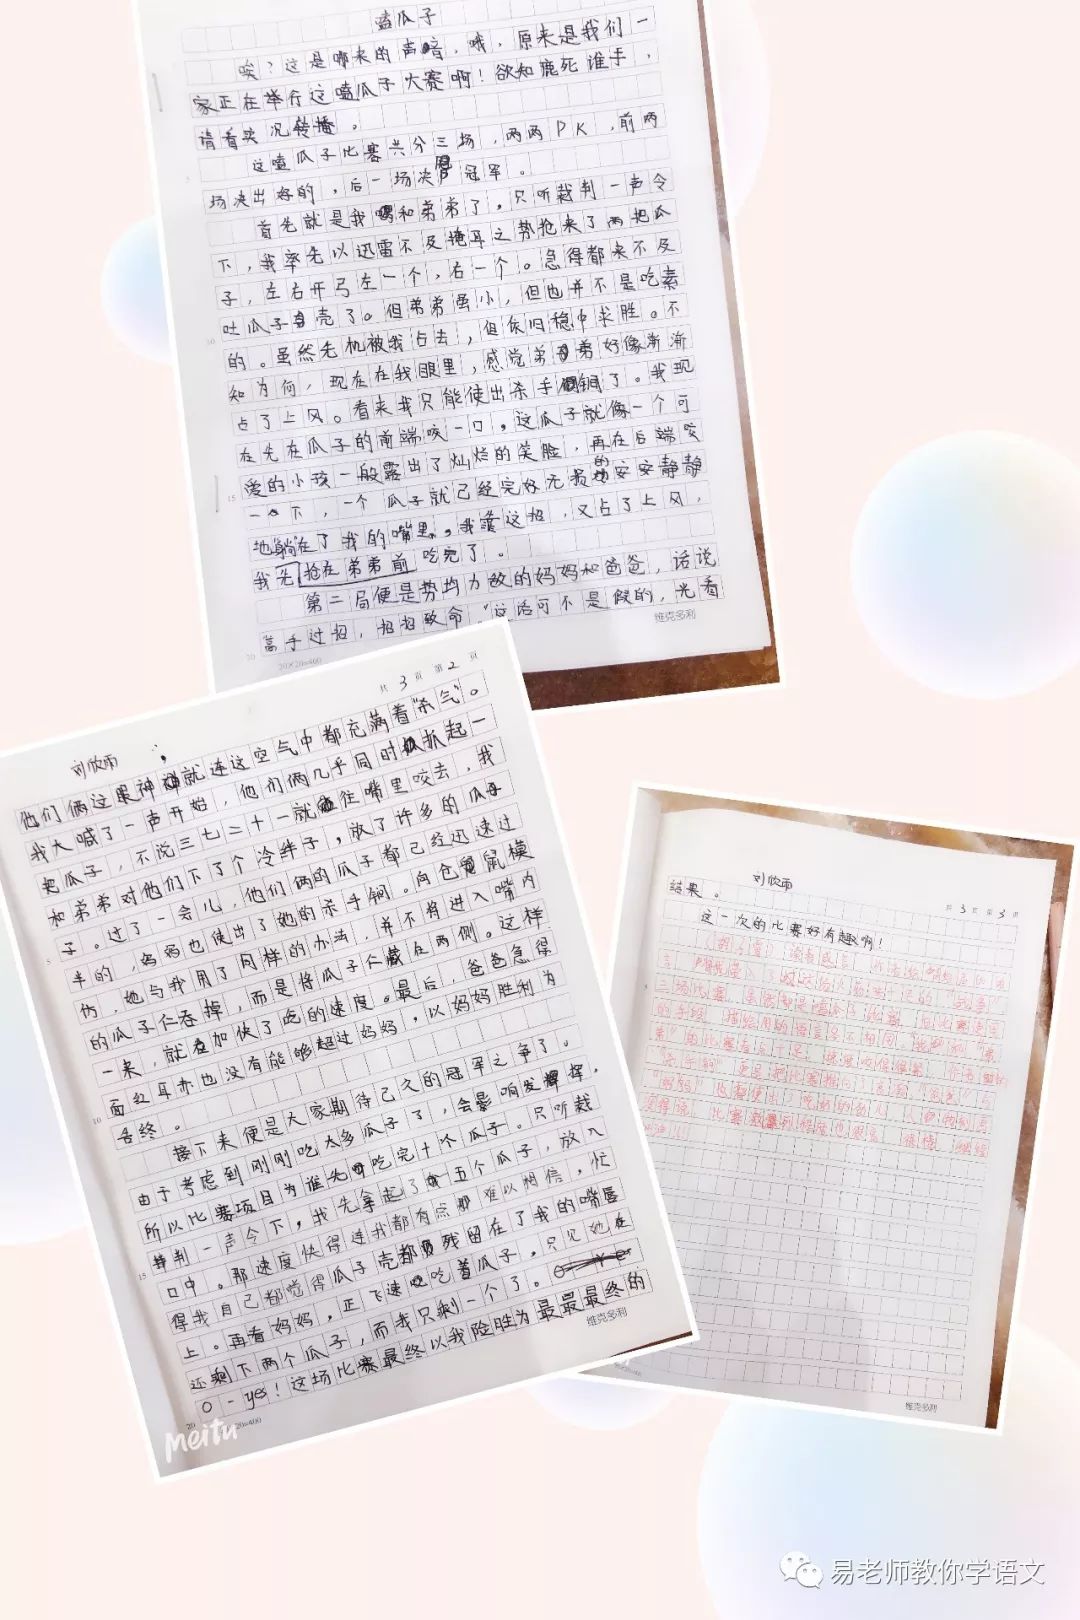 嗑瓜子
唉？这是哪来的声音，哦，原来是我们一
家正在举行这嗑瓜子大赛啊！欲知鹿死谁手，
请看实况转播。
这嗑瓜子比赛共分三场，两两PK，前两
场决出好的，后一场决冠军。
首先就是我和弟弟了，只听裁判一声令
下，我率先以迅雷不及掩耳之势抢来了两把瓜
子，左右开弓左一个，右一个。急得都来不及
吐瓜子壳了。但弟弟虽小，但也并不是吃素
的。虽然先机被我占去，但依旧稳中求胜。不
知为何，现在在我眼里，感觉弟弟好像渐渐
占了上风。看来我只能使出杀手锏了。我现
在先在瓜子的前端咬一口，这瓜子就像一个可
爱的小孩一般露出了灿烂的笑脸，再在后端咬
一下，一个瓜子就已经完好无损的安安静静
地躺在了我的嘴里，我靠这招，又占了上风，
我先抢在弟弟前吃完了。
第二局便是势均力敌的妈妈和爸爸，话说
高手过招，招招致命。这话可不是假的，光看
维克多利
20 20×20=400
共3页第2页
刘欣雨
他们俩这眼神，就连这空气中都充满着“杀气”。
我大喊了一声开始，他们俩几乎同时抓起一
把瓜子，不说三七二十一就往嘴里咬去，我
和弟弟对他们下了个冷绊子，放了许多的瓜子
子。过了一会儿，他们俩的瓜子都已经迅速过
半的，妈妈也使出了她的杀手锏。向仓鼠模
仿，她与我用了同样的办法，并不将进入嘴内
的瓜子仁吞掉，而是将瓜子仁藏在两侧。这样
一来，就加快了吃的速度。最后，爸爸急得
面红耳赤也没有能够超过妈妈，以妈妈胜利为
告终。
接下来便是大家期待已久的冠军之争了。
由于考虑到刚刚吃太多瓜子了，会影响发挥，
所以比赛项目为谁先吃完十个瓜子。只听裁
判一声令下，我先拿起了五个瓜子，放入
口中。那速度快得连我都有点难以相信，忙
得我自己都觉得瓜子壳都残留在了我的嘴唇
上。再看妈妈，正飞速吃着瓜子，只见她
还剩下两个瓜子，而我只剩一个了。
O-yes！这场比赛最终以我险胜为最最最终的
维克多利
20 20×20=400
Meitu
刘欣雨
共3页第3页
结果。
这一次的比赛好有趣啊！
维克多利
易老师教你学语文